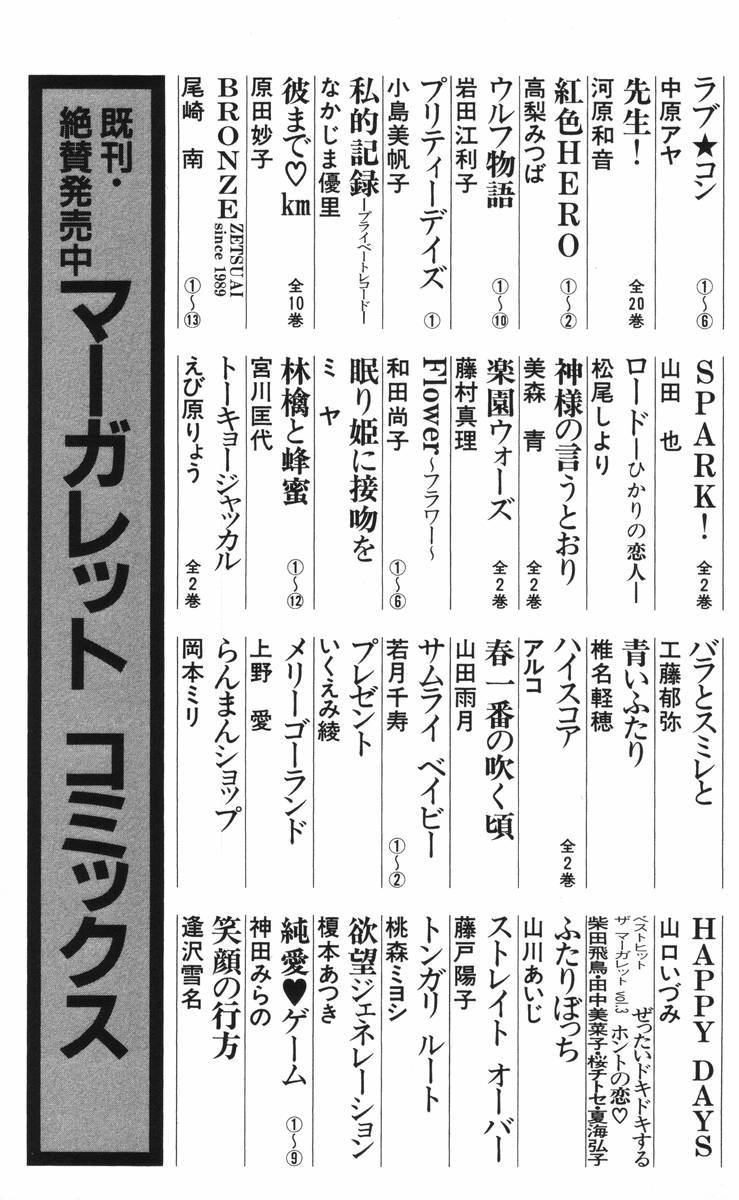 ラブ★コン ①〜⑥
中原アヤ
先生! 全20巻
河原和音
紅色HERO ①〜②
高梨みつば
ウルフ物語 ①〜⑩
岩田江利子
プリティーデイズ ①
小島美帆子
私的記録―プライベートレコード―
なかじま優里
彼まで♡km 全10巻
原田妙子
BRONZE ZETSUAI since 1989 ①〜⑬
尾崎 南
SPARK! 全2巻
山田 也
ロード―ひかりの恋人―
松尾しより
神様の言うとおり 全2巻
美森 青
楽園ウォーズ 全2巻
藤村真理
Flower〜フラワー〜 ①〜⑥
和田尚子
眠り姫に接吻を
ミヤ
林檎と蜂蜜 ①〜⑫
宮川匡代
トーキョージャッカル 全2巻
えび原りょう
バラとスミレと
工藤郁弥
青いふたり
椎名軽穂
ハイスコア 全2巻
アルコ
春一番の吹く頃
山田雨月
サムライ ベイビー ①〜②
若月千寿
プレゼント
いくえみ綾
メリーゴーランド
上野 愛
らんまんショップ
岡本ミリ
HAPPY DAYS
山口いづみ
ベストヒット ザ マーガレット vol.3 ぜったいドキドキする ホントの恋♡
柴田飛鳥・田中美菜子・桜チトセ・夏海弘子
ふたりぼっち
山川あいじ
ストレイト オーバー
藤戸陽子
トンガリ ルート
桃森ミヨシ
欲望ジェネレーション
榎本あつき
純愛♥ゲーム ①〜⑨
神田みらの
笑顔の行方
逢沢雪名
既刊・絶賛発売中
マーガレット コミックス